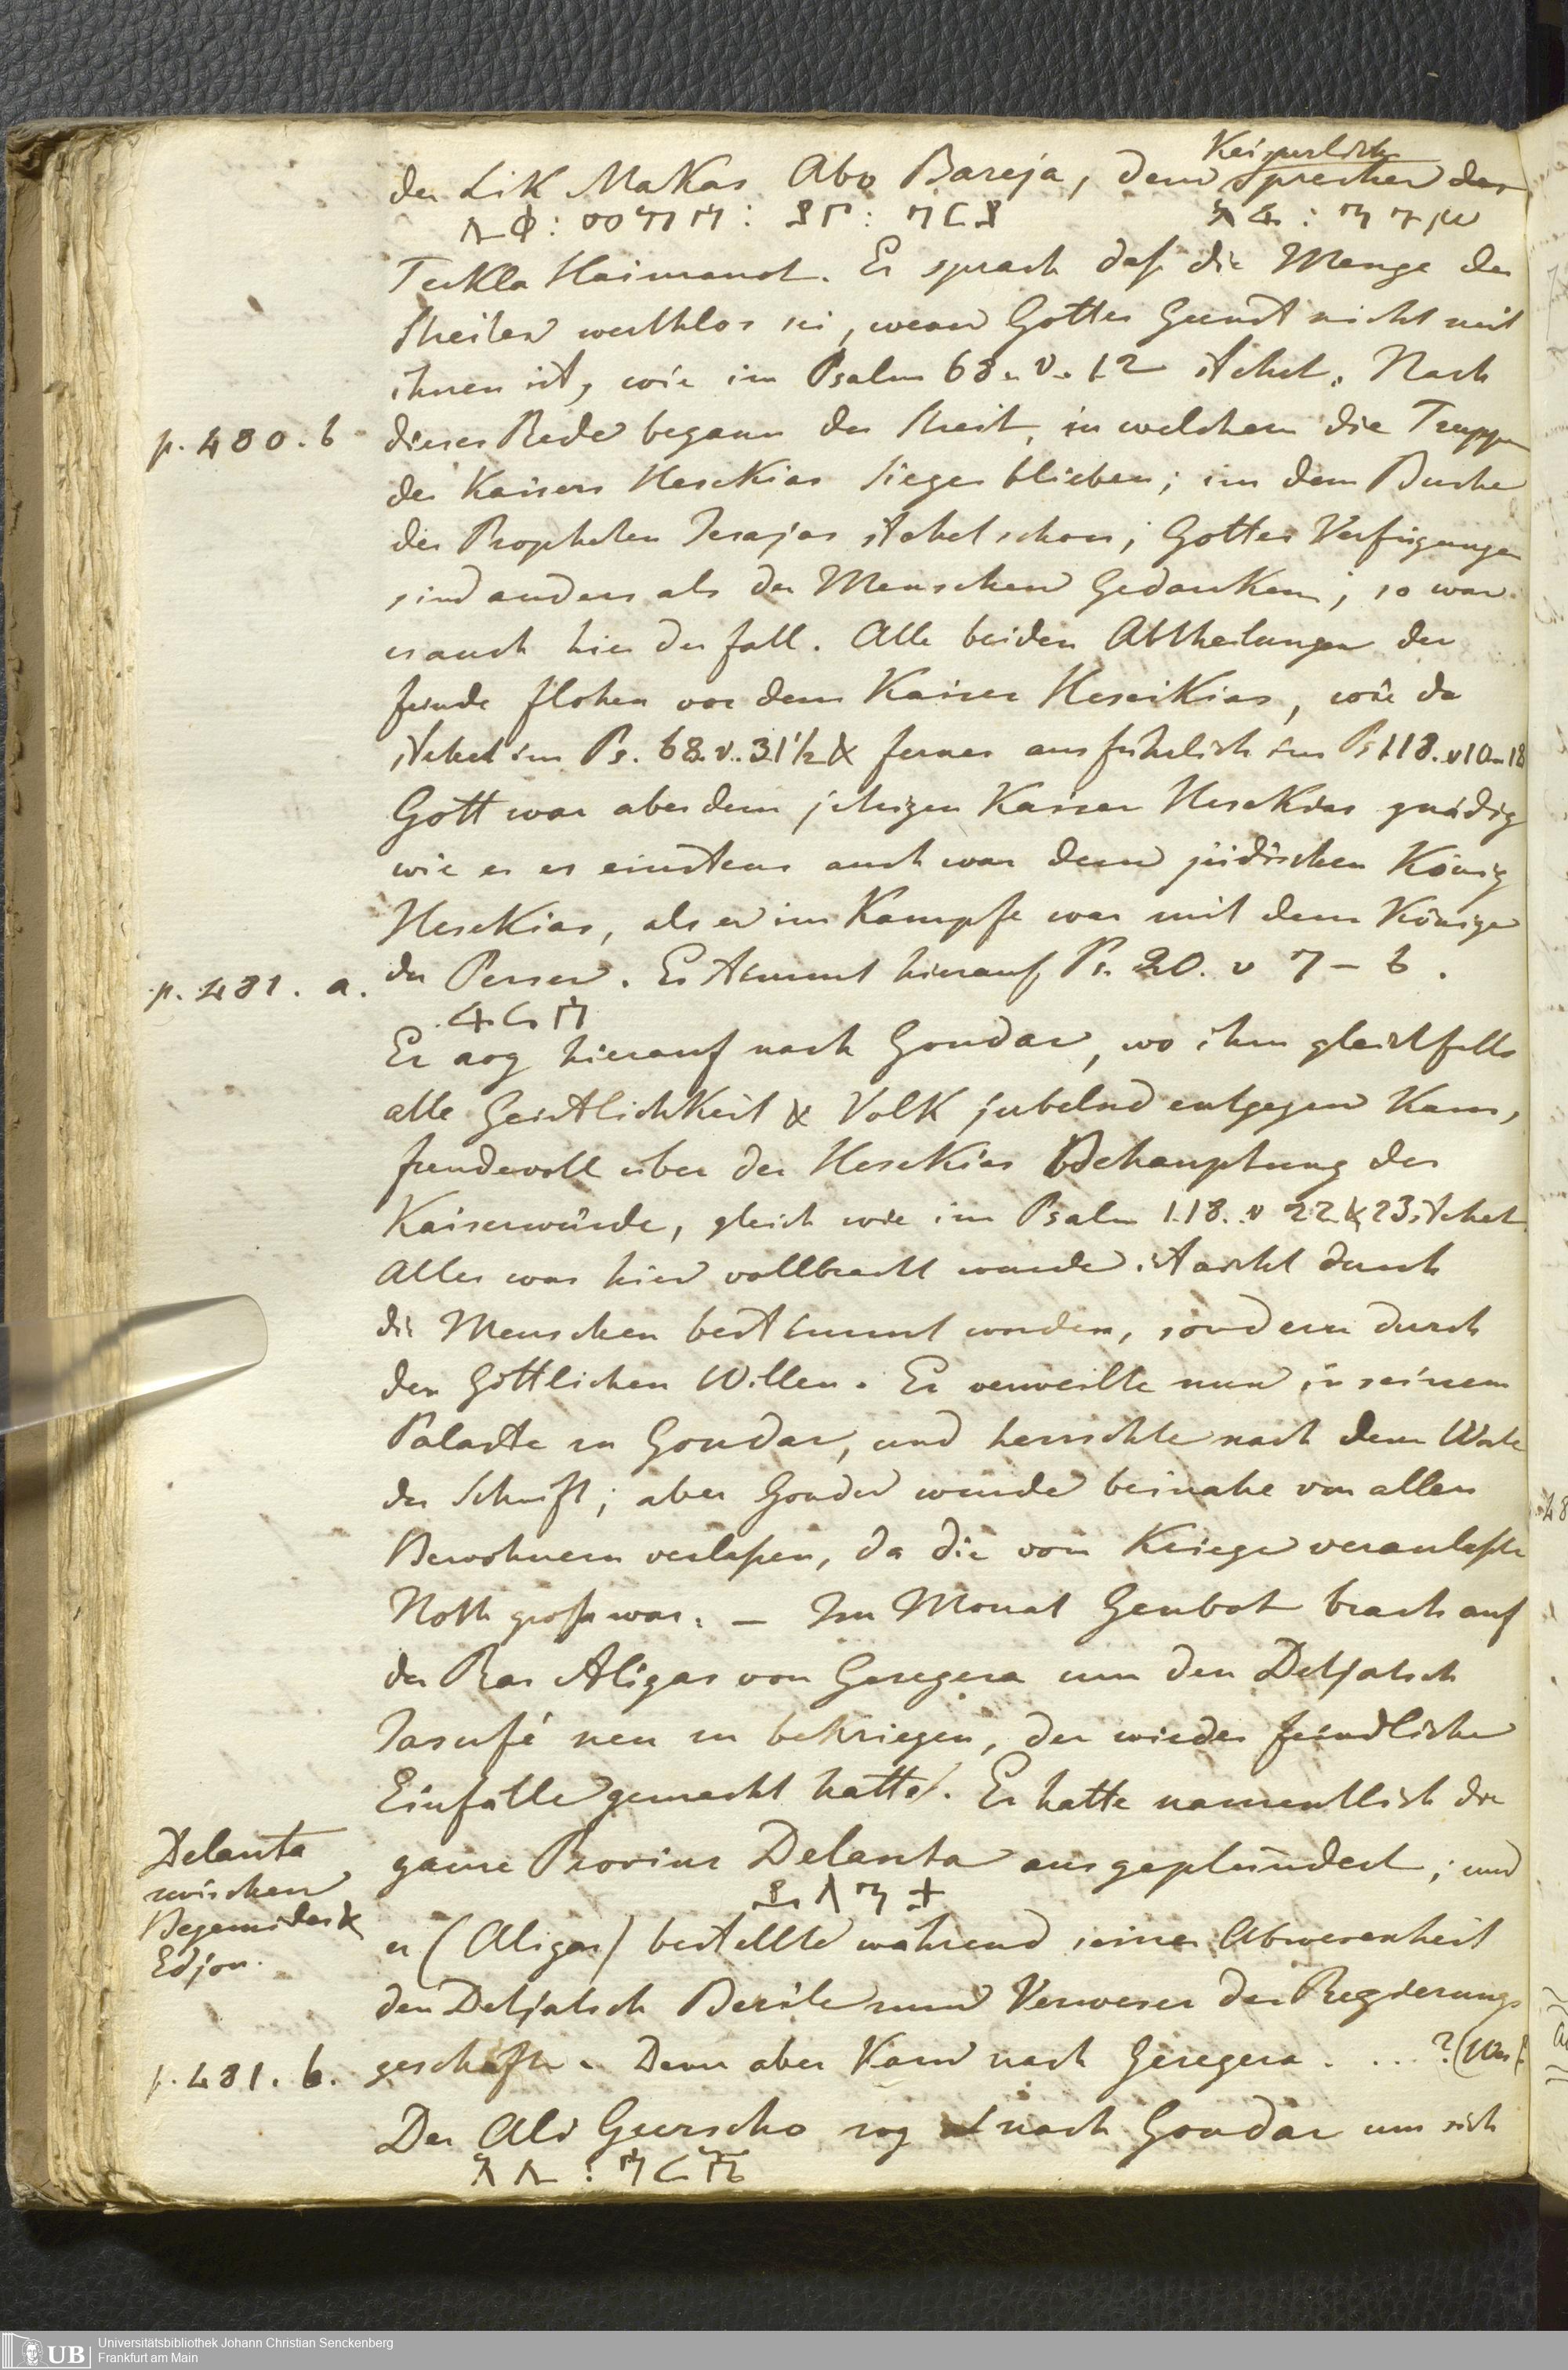 Keiserlich
der Lik Makas Abo Bareja, dem Sprecher des
ሊቀ፡ መኳስ፡ አቦ፡ ባርያ አፈ፡ ንጉሥ
Teckla Haimanot. Er sprach daß die Menge der
Streiter werthlos sei, wenn Gottes Gunst nicht mit
ihnen ist, wie im Psalm 68. v. 12 stehet. Nach
p. 480. b dieser Rede begann der Streit, in welchem die Truppen
des Kaisers Hesekias Sieger blieben; in dem Buche
des Propheten Jesajas stehet schon; Gottes Verfügungen
sind anders als der Menschen Gedanken; so war
es auch hier der fall. Alle beiden Abtheilungen der
feinde flohen vor dem Kaiser Hesekias, wie da
stehet im Ps. 68. v. 31½ & ferner ausführlich im Ps 118. v 10-18
Gott war aber dem jetzigen Kaiser Hesekias gnädig
wie er es einstens auch war dem jüdischen König
Hesekias, als er im Kampfe war mit dem Könige
p. 481. a. der Perser. Es stimmt hierauf Ps. 20. v 7 – 8.
ፋርስ
Er zog hierauf nach Gondar, wo ihm gleichfalls
alle Geistlichkeit & Volk jubelnd entgegen kam,
freudevoll über der Hesekias Behauptung der
Kaiserwürde, gleich wie im Psalm 118. v 22 & 23 stehet
Alles was hier vollbracht wurde ist nicht durch
die Menschen bestimmt worden, sondern durch
den Göttlichen Willen. Er verweilte nun in seinem
Palaste zu Gondar, und herrschte nach dem Worte
der Schrift; aber Gondar wurde beinahe von allen
Bewohnern verlaßen, da die vom Kriege veranlaßte
Noth groß war. – Im Monat Genbot brach auf
der Ras Aligas von Geregera um den Detjatsch
Jasufé neu zu bekriegen, der wieder feindliche
Einfälle gemacht hatte. Er hatte namentlich die
ganze Provinz Delanta ausgeplündert; und
ደላንታ
Delanta
zwischen
Begemider &
Edjou.
er (Aligas) bestellte während seiner Abwesenheit
den Detjatsch Bezile zum Verweser der Regierungs
p. 481. b. geschäfte. Dann aber kam nach Geregera . . . . ? (Wer?
Der Ali Gurscho zog nach Gondar um sich
አሊ፡ ጉርሾ
Universitätsbibliothek Johann Christian Senckenberg
Frankfurt am Main
UB